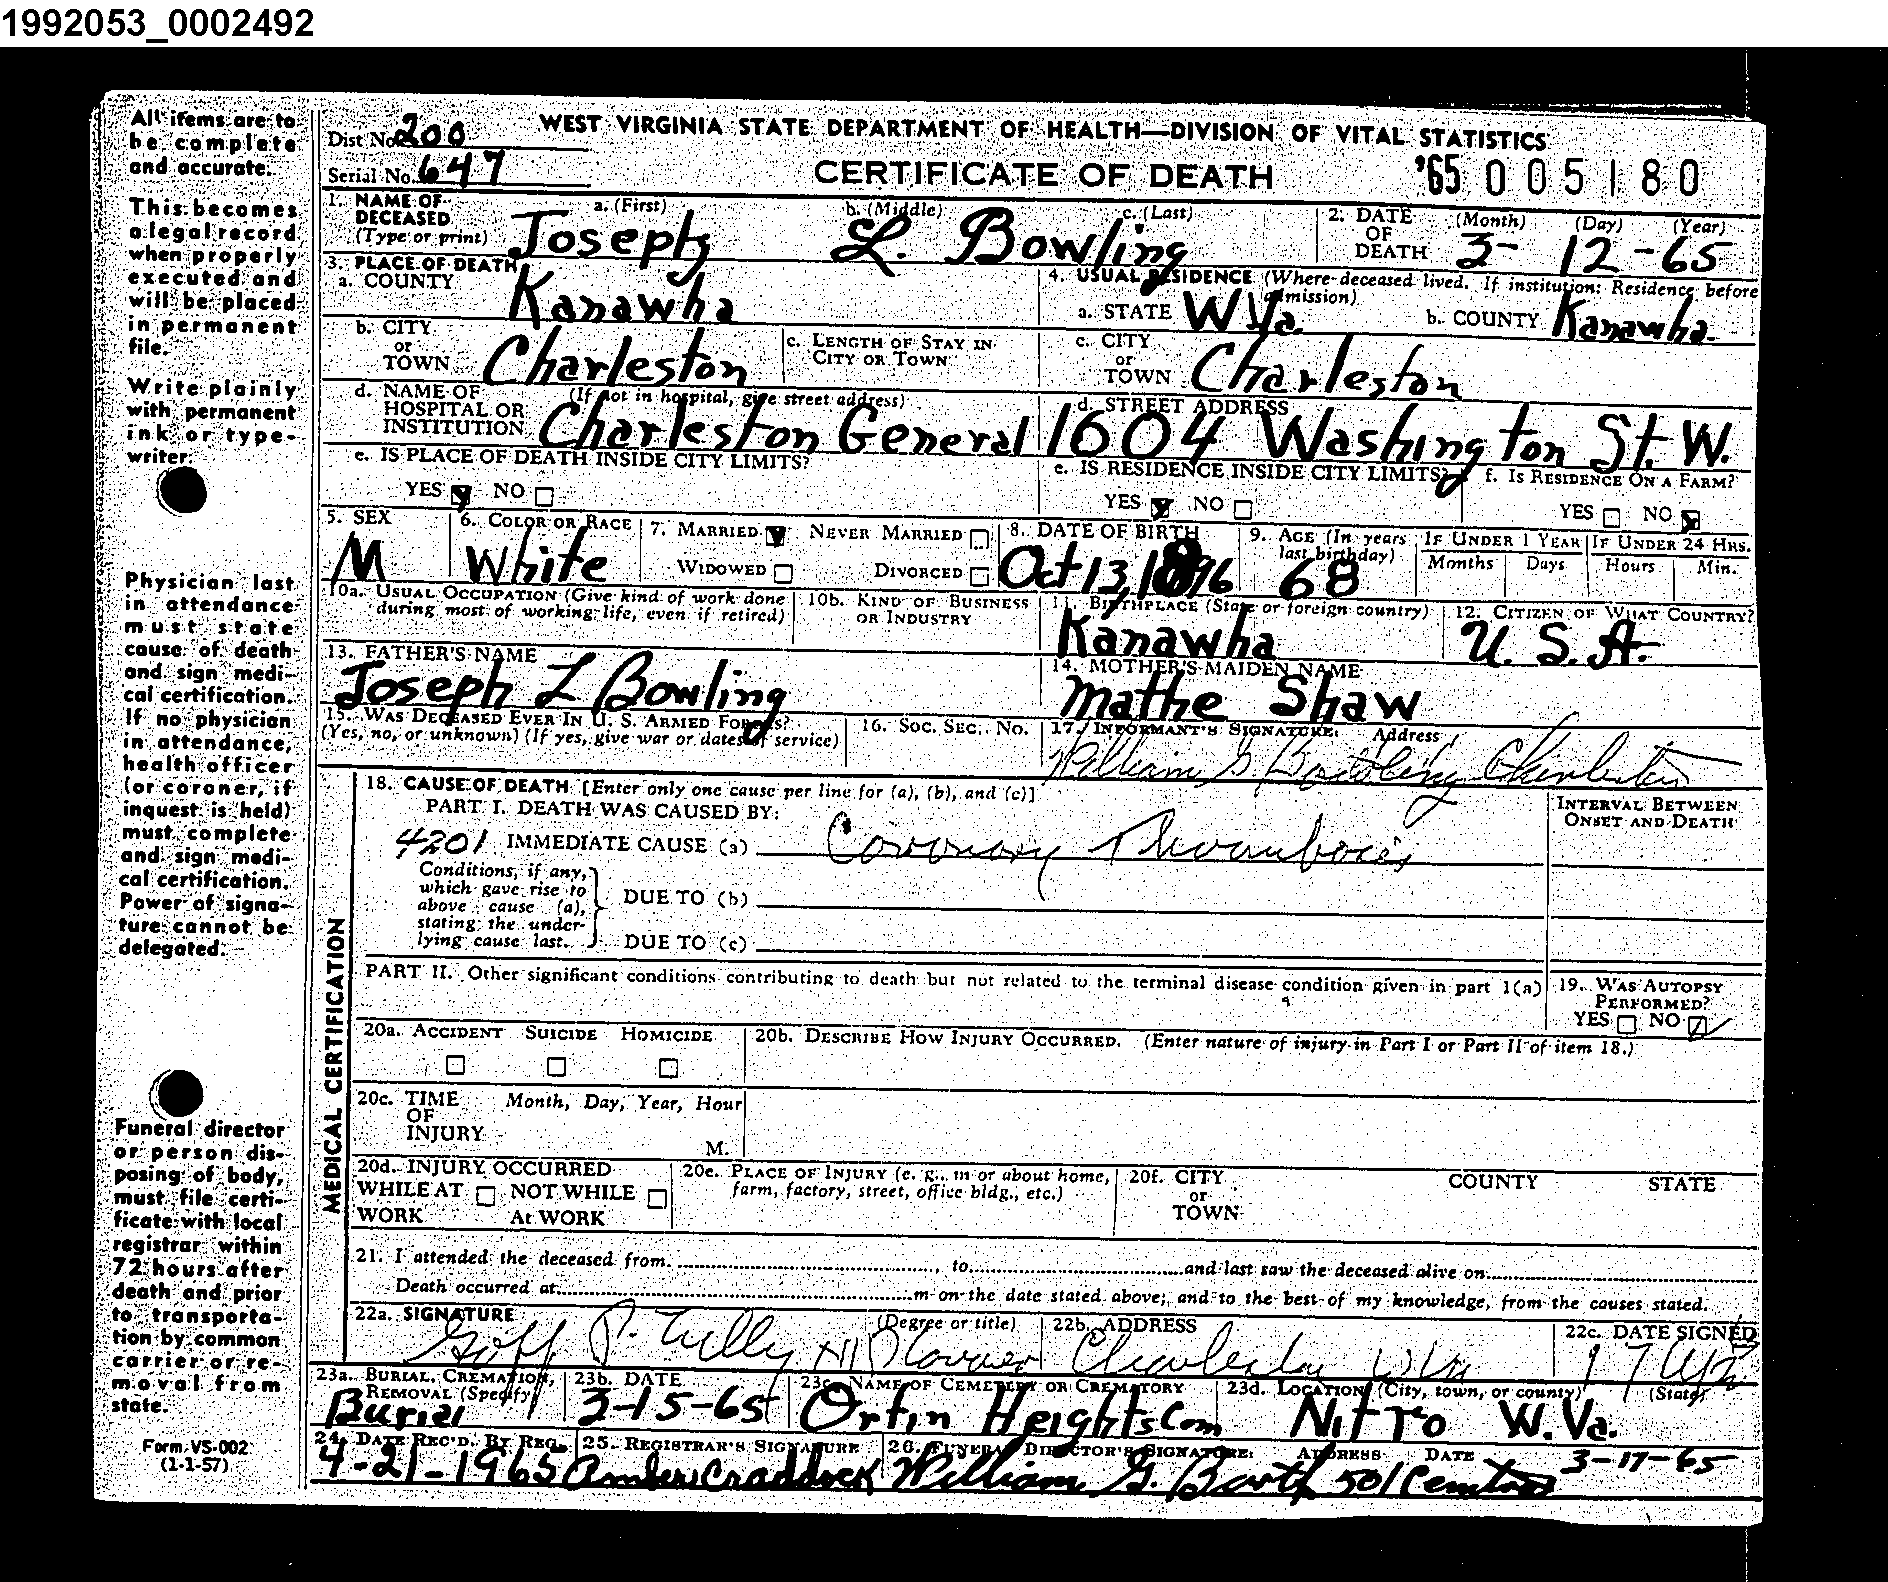 1992053_0002492
All items are to
be complete
and accurate.
This becomes
a legal record
when properly
executed and
will be placed
in permanent
file.
Write plainly
with permanent
ink or type-
writer.
Physician last
in attendance
must state
cause of death
and sign medi-
cal certification.
If no physician
in attendance,
health officer
(or coroner, if
inquest is held)
must complete
and sign medi-
cal certification.
Power of signa-
ture cannot be
delegated.
Funeral director
or person dis-
posing of body,
must file certi-
ficate with local
registrar within
72 hours after
death and prior
to transporta-
tion by common
carrier or re-
moval from
state.
Form VS-002
(1-1-57)
Dist No. 200
WEST VIRGINIA STATE DEPARTMENT OF HEALTH—DIVISION OF VITAL STATISTICS
Serial No. 647
CERTIFICATE OF DEATH
'65 005180
1. NAME OF DECEASED (Type or print)
a. (First) b. (Middle) c. (Last)
Joseph L. Bowling
2. DATE OF DEATH (Month) (Day) (Year)
3- 12 -65
3. PLACE OF DEATH
a. COUNTY Kanawha
4. USUAL RESIDENCE (Where deceased lived. If institution: Residence before admission)
a. STATE W Va. b. COUNTY Kanawha.
b. CITY or TOWN Charleston
c. LENGTH OF STAY IN CITY OR TOWN
c. CITY or TOWN Charleston
d. NAME OF HOSPITAL OR INSTITUTION (If not in hospital, give street address)
Charleston General
d. STREET ADDRESS
1604 Washington St. W.
e. IS PLACE OF DEATH INSIDE CITY LIMITS?
YES NO
e. IS RESIDENCE INSIDE CITY LIMITS?
YES NO
f. IS RESIDENCE ON A FARM?
YES NO
5. SEX
M
6. COLOR OR RACE
White
7. MARRIED NEVER MARRIED
WIDOWED DIVORCED
8. DATE OF BIRTH
Oct 13, 1896
9. AGE (In years last birthday)
68
IF UNDER 1 YEAR
Months Days
IF UNDER 24 HRS.
Hours Min.
10a. USUAL OCCUPATION (Give kind of work done during most of working life, even if retired)
10b. KIND OF BUSINESS OR INDUSTRY
11. BIRTHPLACE (State or foreign country)
Kanawha
12. CITIZEN OF WHAT COUNTRY?
U. S. A.
13. FATHER'S NAME
Joseph L Bowling
14. MOTHER'S MAIDEN NAME
Mathe Shaw
15. WAS DECEASED EVER IN U. S. ARMED FORCES?
(Yes, no, or unknown) (If yes, give war or dates of service)
16. SOC. SEC. NO.
17. INFORMANT'S SIGNATURE: Address
William G Charleston
MEDICAL CERTIFICATION
18. CAUSE OF DEATH [Enter only one cause per line for (a), (b), and (c)]
PART I. DEATH WAS CAUSED BY:
INTERVAL BETWEEN ONSET AND DEATH
4201 IMMEDIATE CAUSE (a) Coronary Thrombosis
Conditions, if any, which gave rise to above cause (a), stating the underlying cause last.
DUE TO (b)
DUE TO (c)
PART II. Other significant conditions contributing to death but not related to the terminal disease condition given in part 1(a)
19. WAS AUTOPSY PERFORMED?
YES NO
20a. ACCIDENT SUICIDE HOMICIDE
20b. DESCRIBE HOW INJURY OCCURRED. (Enter nature of injury in Part I or Part II of item 18.)
20c. TIME OF INJURY Month, Day, Year, Hour
M.
20d. INJURY OCCURRED
WHILE AT WORK NOT WHILE AT WORK
20e. PLACE OF INJURY (e. g., in or about home, farm, factory, street, office bldg., etc.)
20f. CITY or TOWN COUNTY STATE
21. I attended the deceased from ..., to ... and last saw the deceased alive on...
Death occurred at ... m on the date stated above; and to the best of my knowledge, from the causes stated.
22a. SIGNATURE (Degree or title)
Goff P. Lilly MD Coroner
22b. ADDRESS
Charleston W Va
22c. DATE SIGNED
23a. BURIAL, CREMATION, REMOVAL (Specify)
Burial
23b. DATE
3-15-65
23c. NAME OF CEMETERY OR CREMATORY
Ortin Heights Cem
23d. LOCATION (City, town, or county) (State)
Nitro W. Va.
24. DATE REC'D. BY REG.
4-21-1965
25. REGISTRAR'S SIGNATURE
Craddock
26. FUNERAL DIRECTOR'S SIGNATURE: ADDRESS DATE
William G. Barth 501 3-17-65